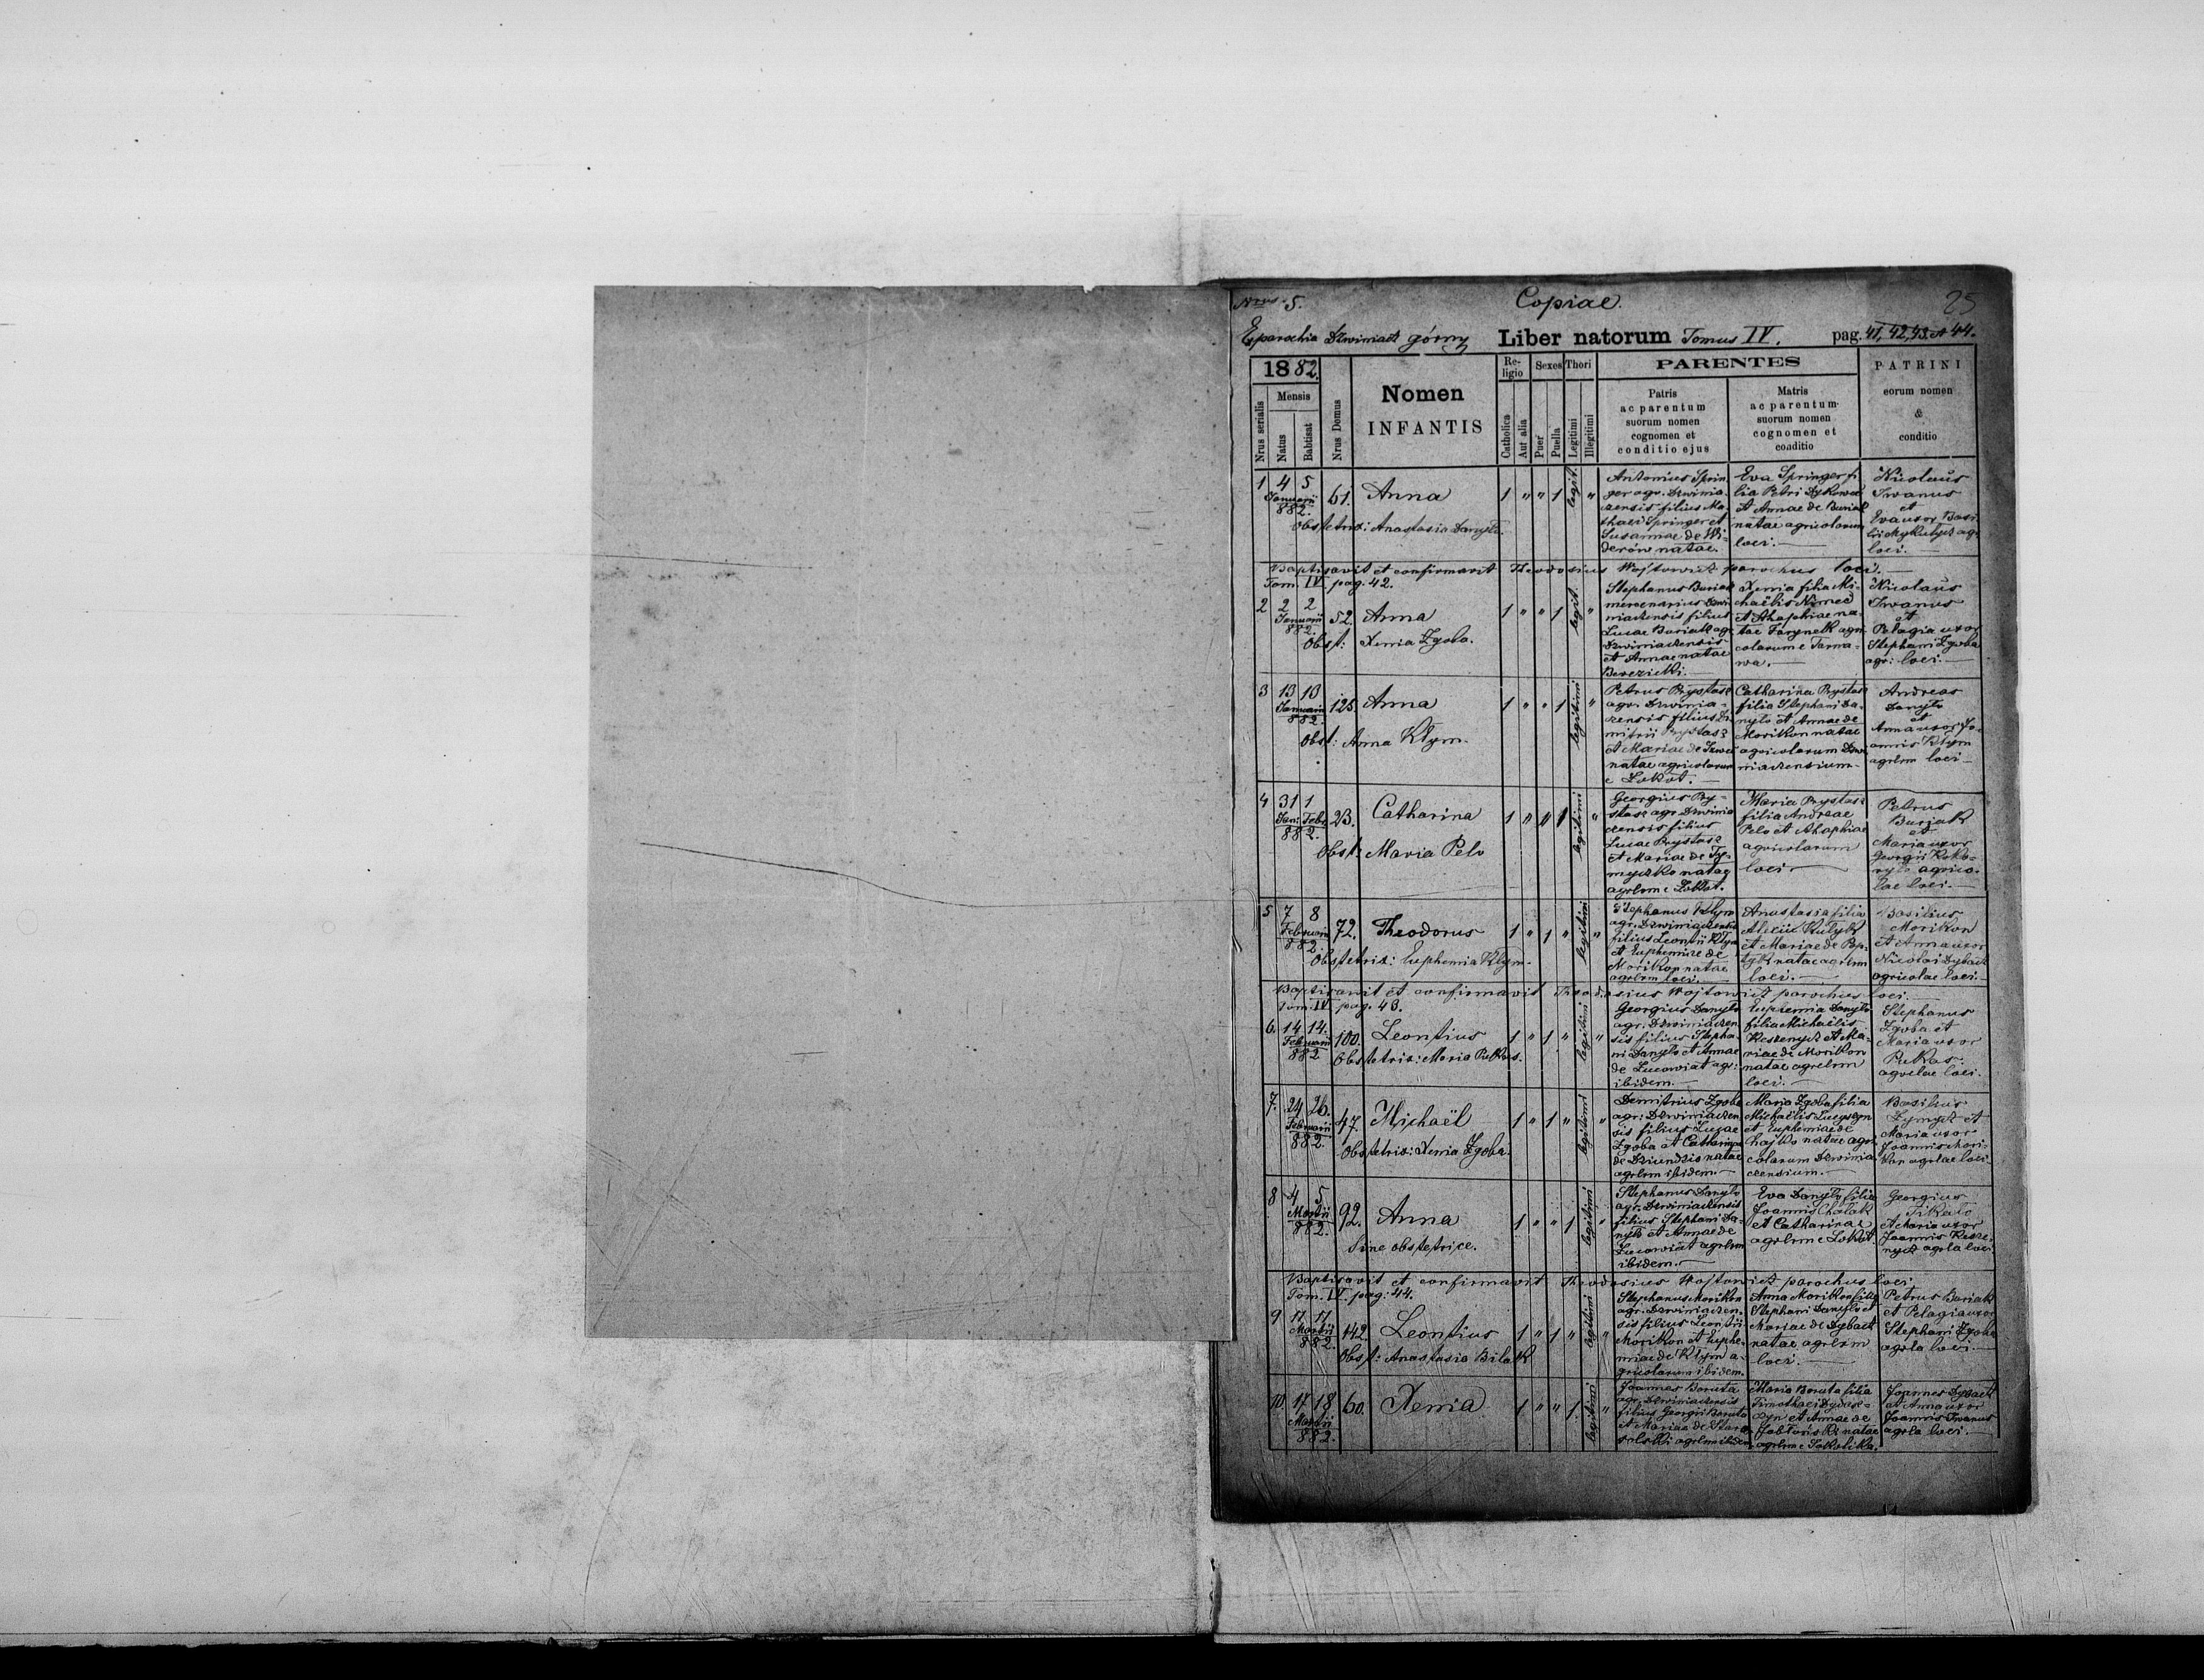 Nrus 5. Copiae. 25
Eparochia Dzwiniacz górny Liber natorum Tomus IV. pag. 41, 42, 43 et 44.
1882.
Mensis
Nrus serialis
Natus
Babtisat
Nrus Domus
Nomen
INFANTIS
Re-
ligio
Catholica
Aut alia
Sexes
Puer
Puella
Thori
Legitimi
Illegitimi
PARENTES
Patris
ac parentum
suorum nomen
cognomen et
conditio ejus
Matris
ac parentum
suorum nomen
cognomen et
conditio
PATRINI
eorum nomen
&
conditio
1 4 5
Januarii
882.
61. Anna 1 " " 1 legit. "
Obstetrix: Anastasia Danyło.
Antonius Sprin
ger agr. Dzwinia
czensis filius Ma
thaei Springer et
Susannae de
natae.
Eva Springer fi
lia Petri
et Annae de Buriak
natae agricolarum
loci.
Nicolaus
Iwanus
et
Eva uxor Basi
lii agr.
loci.
Baptisavit et confirmavit Theodosius Wojtowicz parochus loci.
Tom. IV pag. 42.
2 2 2
Januarii
882.
52. Anna 1 " " 1 legit. "
Obst: Xenia Zgoba.
Stephanus Buriak
mercenarius Dzwi
niaczensis filius
Lucae Buriak agr.
Dzwiniaczensis
et Annae natae
Berezicki.
Xenia filia Mi-
chaëlis Nimec
et Ahaphiae na
tae agri
colarum e Tarna-
wa.
Nicolaus
Iwanus
et
Pelagia uxor
Stephani Zgoba
agr: loci.
3 13 13
Januarii
882.
125. Anna 1 " " 1 legitimi "
Obst: Anna Kłym.
Petrus Prystasz
agr. Dzwinia-
czensis filius Di
mitrii Prystasz
et Mariae de
natae agricolarum
e Łokot.
Catharina Prystasz
filia Stephani Da-
nyło et Annae de
Morikon natae
agricolarum Dzwi
niaczensium.
Andreas
Danyło
et
Anna uxor Jo-
annis Kłym
agrlrm loci
4 31 1
Jan: Febr.
882.
23. Catharina 1 " " 1 legitimi "
Obst: Maria Pelo
Georgius Pry-
stasz agr. Dzwinia
czensis filius
Lucae Prystasz
et Mariae de Ty-
myczko natae
agrlrm e Łokot.
Maria Prystasz
filia Andreae
Pelo et Ahaphiae
agricolarum
loci
Petrus
Buriak
et
Maria uxor
Georgii
agrico-
lae loci.
5 7 8
Februarii
882
72. Theodorus 1 " 1 " legitimi "
Obstetrix: Euphemia Kłym.
Stephanus Kłym
agr. Dzwiniaczensis
filius Leontii Kłym
et Euphemiae de
Morikon natae
agrlrm loci.
Anastasia filia
Alexii Kułyk
et Mariae de
natae agrlrm
loci.
Basilius
Morikon
et Anna uxor
Nicolai Dybacz
agricolae loci.
Baptisavit et confirmavit Theodosius Wojtowicz parochus loci.
Tom. IV pag. 43.
6. 14 14.
Februarii
882
100. Leontius 1 " 1 " legitimi "
Obstetrix: Maria Pukas.
Georgius Danyło
agr. Dzwiniaczen
sis filius Stepha
ni Danyło et Annae
de Lucowiat agr:
ibidem.
Euphemia Danyło
filia Michaëlis
Keszenycz et Ma-
riae de Morikon
natae agrlrm
loci.
Stephanus
Zgoba et
Maria uxor
Pukas
agrlae loci.
7. 24 26.
Februarii
882.
47. Michaël 1 " 1 " legitimi "
Obstetrix: Xenia Zgoba.
Demitrius Zgoba
agr: Dzwiniaczen
sis filius Lucae
Zgoba et Catharinae
de Dziundzis natae
agrlrm ibidem.
Maria Zgoba filia
Michaëlis
et Euphemiae de
natae agri
colarum Dzwinia
czensium.
Basilius
et
Maria uxor
Joannis Mori-
kon agrlae loci
8 4 5
Martii
882.
92. Anna 1 " " 1 legitimi "
Sine obstetrice.
Stephanus Danyło
agr. Dzwiniaczensis
filius Stephani Da-
nyło et Annae de
Lucowiat agrlrm
ibidem.
Eva Danyło filia
Joannis Chalak
et Catharinae
agrlrm e Łokot.
Georgius
Fikało
et Maria uxor
Joannis Kesze-
nycz agrla loci
Baptisavit et confirmavit Theodosius Wojtowicz parochus loci.
Tom. IV. pag: 44.
9 17 17
Martii
882.
142. Leontius 1 " 1 " legitimi "
Obst: Anastasia Bilak
Stephanus Morikon
agr. Dzwiniaczen
sis filius Leontii
Morikon et Euphe-
miae de Kłym a-
gricolarum ibidem.
Anna Morikon filia
Stephani Danyło et
Mariae de Dybacz
natae agrlrm
loci.
Petrus Buriak
et Pelagia uxor
Stephani Zgoba
agrla loci.
10. 17 18
Martii
882.
60. Xenia 1 " " 1. legitimi "
Joannes Boruta
agr. Dzwiniaczensis
filius Georgii Boruta
et Mariae de Staro
solski agrlrm ibidem
Maria Boruta filia
Timothaei
et Annae de
Jabłoński natae
agrlrm e Sokoliki.
Joannes Dybacz
et Anna uxor
Joannis Iwanus
agrla loci.